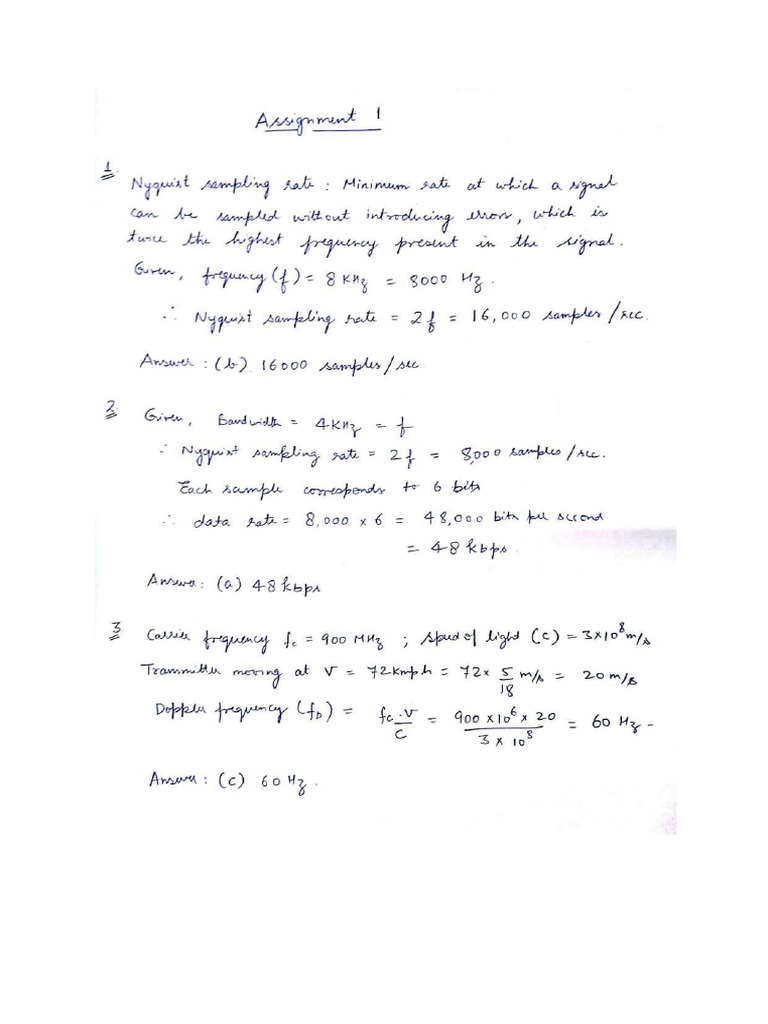 Assignment 1
1. Nyquist sampling rate : Minimum rate at which a signal
can be sampled without introducing error, which is
twice the highest frequency present in the signal.
Given, frequency (f) = 8 KHz = 8000 Hz.
∴ Nyquist sampling rate = 2f = 16,000 samples/sec.
Answer : (b) 16000 samples/sec
2. Given, Bandwidth = 4KHz = f
∴ Nyquist sampling rate = 2f = 8,000 samples/sec.
Each sample corresponds to 6 bits
∴ data rate = 8,000 × 6 = 48,000 bits per second
= 48 kbps.
Answer: (a) 48 kbps
3. Carrier frequency fc = 900 MHz ; speed of light (c) = 3×10^8 m/s
Transmitter moving at V = 72Kmph = 72 × 5/18 m/s = 20 m/s
Doppler frequency (fD) = fc.V/C = 900 × 10^6 × 20 / 3 × 10^8 = 60 Hz -
Answer: (C) 60 Hz.